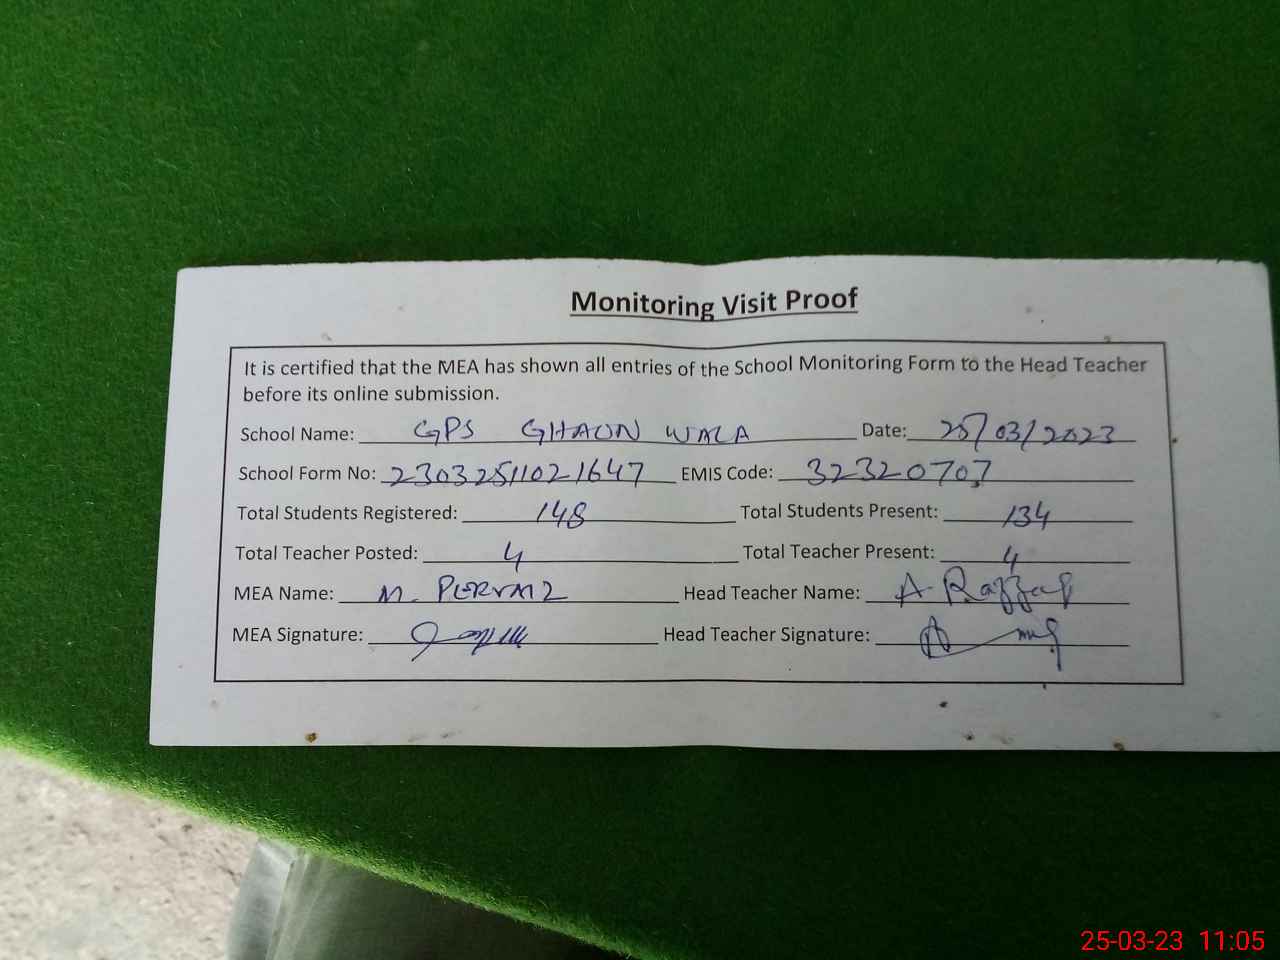 Monitoring Visit Proof
It is certified that the MEA has shown all entries of the School Monitoring Form to the Head Teacher
before its online submission.
School Name: GPS GHAUN WALA Date: 25/03/2023
School Form No: 23032511021647 EMIS Code: 32320707
Total Students Registered: 148 Total Students Present: 134
Total Teacher Posted: 4 Total Teacher Present: 4
MEA Name: M. PERVAIZ Head Teacher Name: A Razzaq
MEA Signature: Head Teacher Signature:
25-03-23 11:05